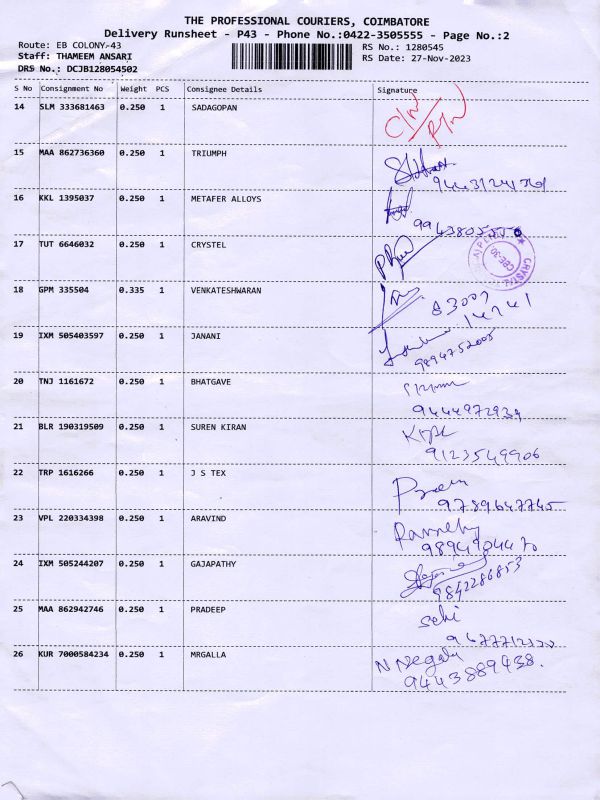 THE PROFESSIONAL COURIERS, COIMBATORE
Delivery Runsheet - P43 - Phone No.:0422-3505555 - Page No.:2
Route: EB COLONY-43
RS No.: 1280545
Staff: THAMEEM ANSARI
RS Date: 27-Nov-2023
DRS No.: DCJB128054502
S No Consignment No Weight PCS Consignee Details Signature
14 SLM 333681463 0.250 1 SADAGOPAN
15 MAA 862736360 0.250 1 TRIUMPH
16 KKL 1395037 0.250 1 METAFER ALLOYS
17 TUT 6646032 0.250 1 CRYSTEL
18 GPM 335504 0.335 1 VENKATESHWARAN
83007
14241
19 IXM 505403597 0.250 1 JANANI
9894752005
20 TNJ 1161672 0.250 1 BHATGAVE
9444972934
21 BLR 190319509 0.250 1 SUREN KIRAN
9123549906
22 TRP 1616266 0.250 1 J S TEX
9789647745
23 VPL 220334398 0.250 1 ARAVIND
24 IXM 505244207 0.250 1 GAJAPATHY
9842286853
25 MAA 862942746 0.250 1 PRADEEP
26 KUR 7000584234 0.250 1 MRGALLA
9443889438.